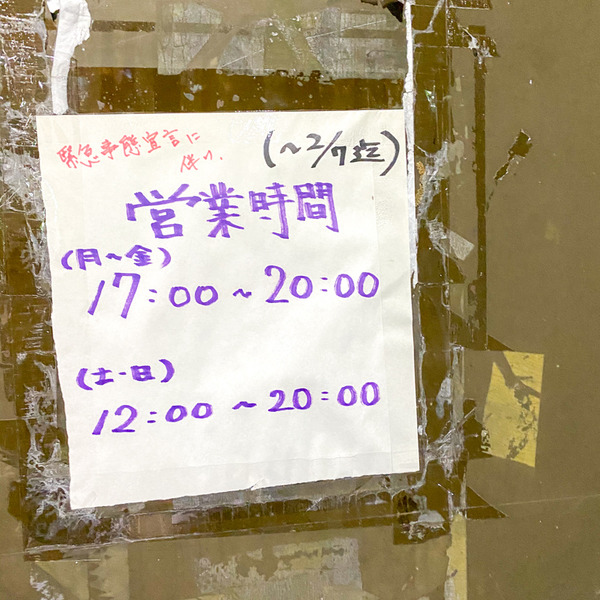 緊急事態宣言に
伴い、
(~2/7迄)
営業時間
(月~金)
17:00~20:00
(土・日)
12:00~20:00